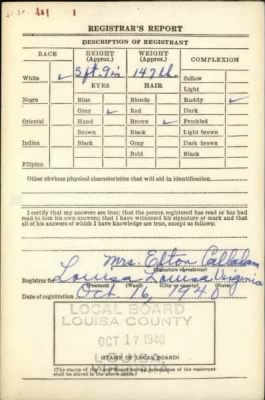 REGISTRAR'S REPORT
DESCRIPTION OF REGISTRANT
RACE HEIGHT (Approx.) WEIGHT (Approx.) COMPLEXION
White ✓ 5 ft. 9 in 147 lb. Sallow
EYES HAIR Light
Negro Blue Blonde Ruddy ✓
Gray ✓ Red Dark
Oriental Hazel Brown ✓ Freckled
Brown Black Light brown
Indian Black Gray Dark brown
Bald Black
Filipino
Other obvious physical characteristics that will aid in identification
I certify that my answers are true; that the person registered has read or has had
read to him his own answers; that I have witnessed his signature or mark and that
all of his answers of which I have knowledge are true, except as follows:
Mrs. Elton Callaham
(Signature of registrar)
Registrar for Louisa Louisa Virginia
(Precinct) (Ward) (City or county) (State)
Date of registration Oct 16, 1940
LOCAL BOARD
LOUISA COUNTY
OCT 17 1940
LOUISA
(STAMP OF LOCAL BOARD)
(The stamp of the Local Board having jurisdiction of the registrant
shall be placed in the above space.)